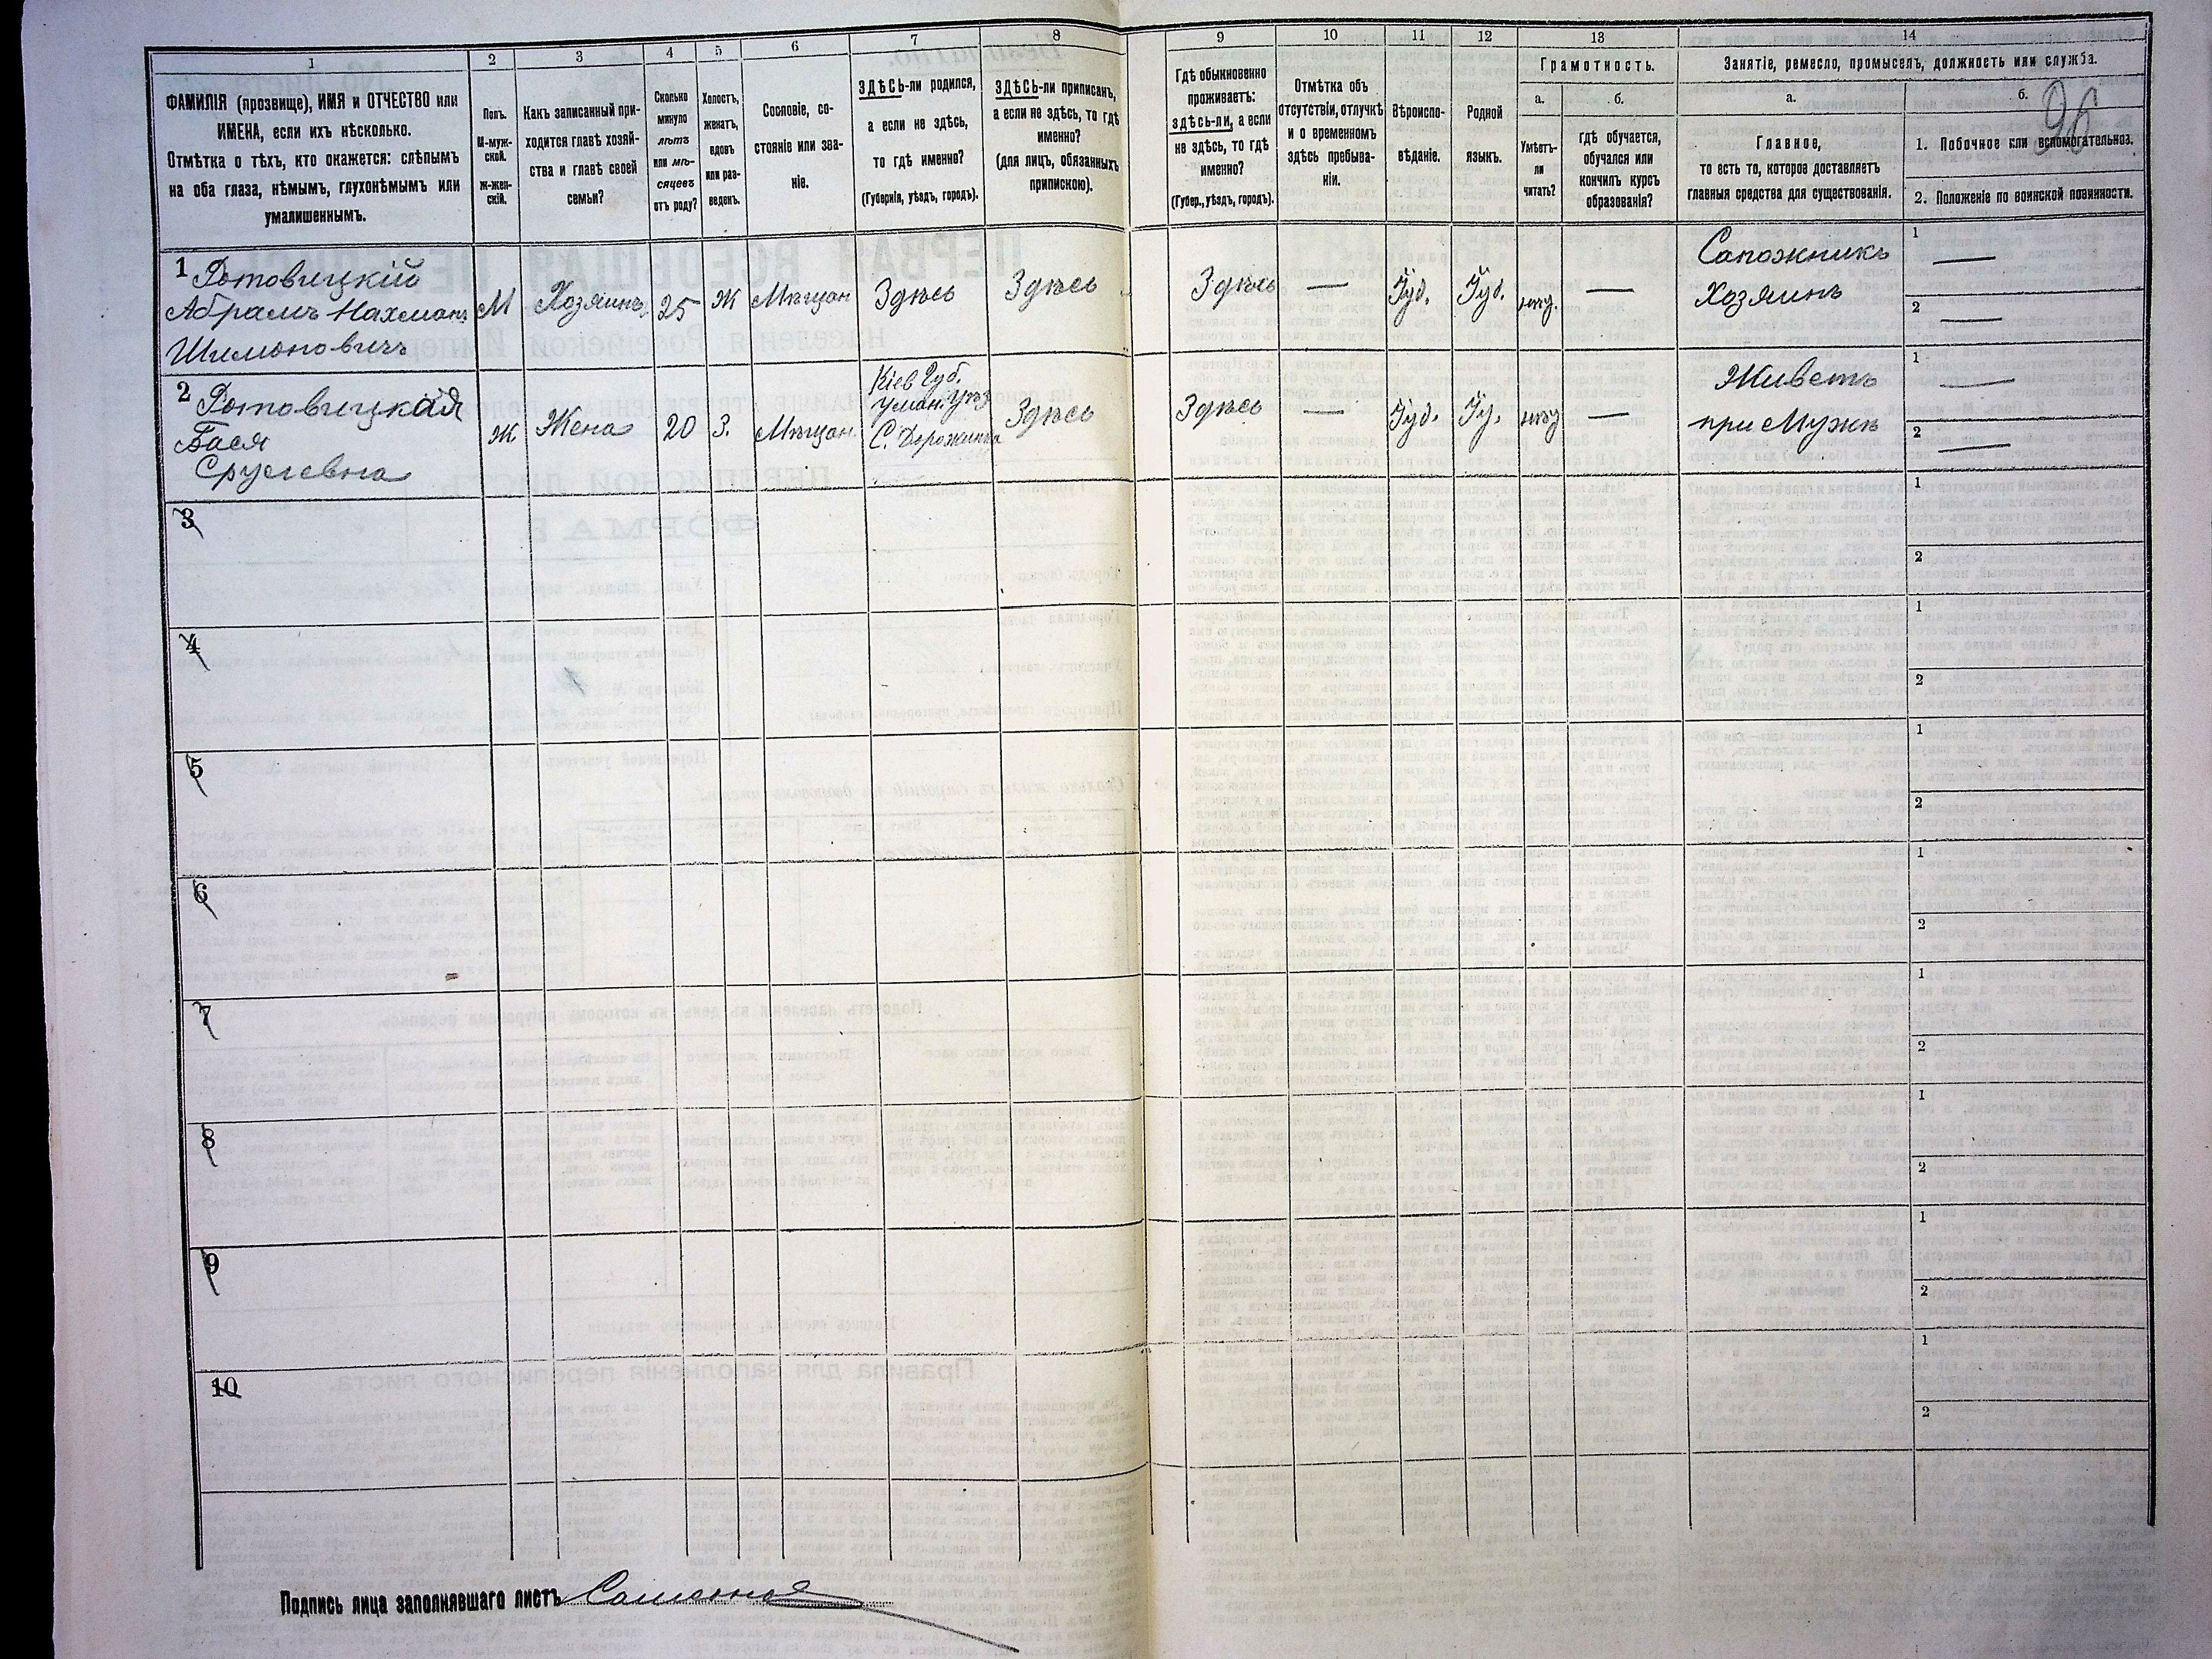 1
ФАМИЛІЯ (прозвище), ИМЯ и ОТЧЕСТВО или
ИМЕНА, если ихъ нѣсколько.
Отмѣтка о тѣхъ, кто окажется: слѣпымъ
на оба глаза, нѣмымъ, глухонѣмымъ или
умалишеннымъ.
2
Полъ.
М-муж-
ской.
ж-жен-
скій.
3
Какъ записанный при-
ходится главѣ хозяй-
ства и главѣ своей
семьи?
4
Сколько
минуло
лѣтъ
или мѣ-
сяцевъ
отъ роду?
5
Холостъ,
женатъ,
вдовъ
или раз-
веденъ.
6
Сословіе, со-
стояніе или зва-
ніе.
7
ЗДѢСЬ-ли родился,
а если не здѣсь,
то гдѣ именно?
(Губернія, уѣздъ, городъ).
8
ЗДѢСЬ-ли приписанъ,
а если не здѣсь, то гдѣ
именно?
(для лицъ, обязанныхъ
припискою).
9
Гдѣ обыкновенно
проживаетъ:
здѣсь-ли, а если
не здѣсь, то гдѣ
именно?
(Губер., уѣздъ, городъ).
10
Отмѣтка объ
отсутствіи, отлучкѣ
и о временномъ
здѣсь пребыва-
ніи.
11
Вѣроиспо-
вѣданіе.
12
Родной
языкъ.
13
Грамотность.
а.
Умѣетъ-
ли
читать?
б.
гдѣ обучается,
обучался или
кончилъ курсъ
образованія?
14
Занятіе, ремесло, промыселъ, должность или служба.
а.
Главное,
то есть то, которое доставляетъ
главныя средства для существованія.
б.
96
1. Побочное или вспомогательное.
2. Положеніе по воинской повинности.
1 Ротовицкій
Абрамъ Нахманъ
Шимоновичъ
М
Хозяинъ
25
Ж
Мѣщан
Здѣсь
Здѣсь
Здѣсь
—
Іуд.
Іуд.
нѣт.
—
Сапожникъ
Хозяинъ
1 —
2 —
2 Ротовицкая
Бася
Срулевна
Ж
Жена
20
З.
Мѣщан.
Кіев Губ.
Уман. Уѣзд
Здѣсь
Здѣсь
—
Іуд.
Іу.
нѣт
—
Живетъ
при Мужѣ
1 —
2 —
3
1
2
4
1
2
5
1
2
6
1
2
7
1
2
8
1
2
9
1
2
10
1
2
Подпись лица заполнявшаго листъ